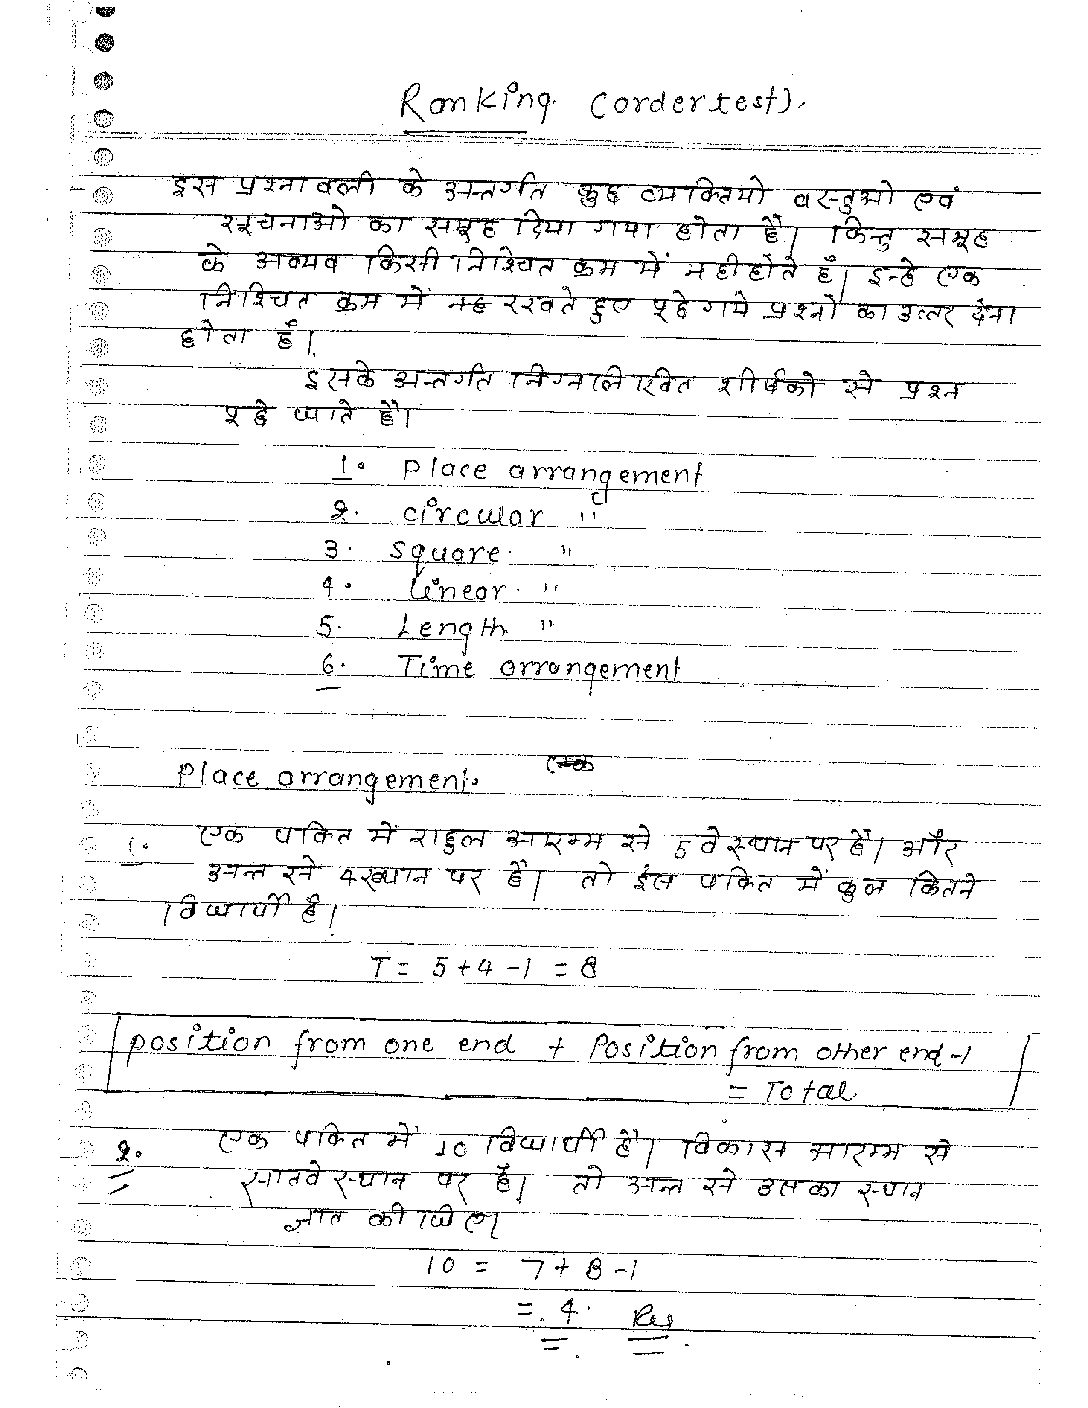 Ranking. (order test).
इस प्रश्नावली के अन्तर्गत कुछ व्यक्तियो वस्तुओ एवं
सूचनाओ का समूह दिया गया होता है। किन्तु समूह
के अवयव किसी निश्चित क्रम में नही होते हैं। इन्हे एक
निश्चित क्रम में रखते हुए पूछे गये प्रश्नो का उत्तर देना
होता हैं।
इसके अन्तर्गत निम्नलिखित शीर्षको से प्रश्न
पूछे जाते है।
1. Place arrangement
2. circular "
3. square. "
4. linear. "
5. Length "
6. Time arrangement
Place arrangement.
1. एक पंक्ति में राहुल आरम्भ से 5 वे स्थान पर है। और
अन्त से 4 स्थान पर है। तो इस पंक्ति में कुल कितने
विद्यार्थी है।
T = 5+4-1 = 8
position from one end + Position from other end -1
= Total
2. एक पंक्ति में 10 विद्यार्थी है। विकास आरम्भ से
सातवे स्थान पर है। तो अन्त से उसका स्थान
ज्ञात कीजिए।
10 = 7+8-1
= 4.